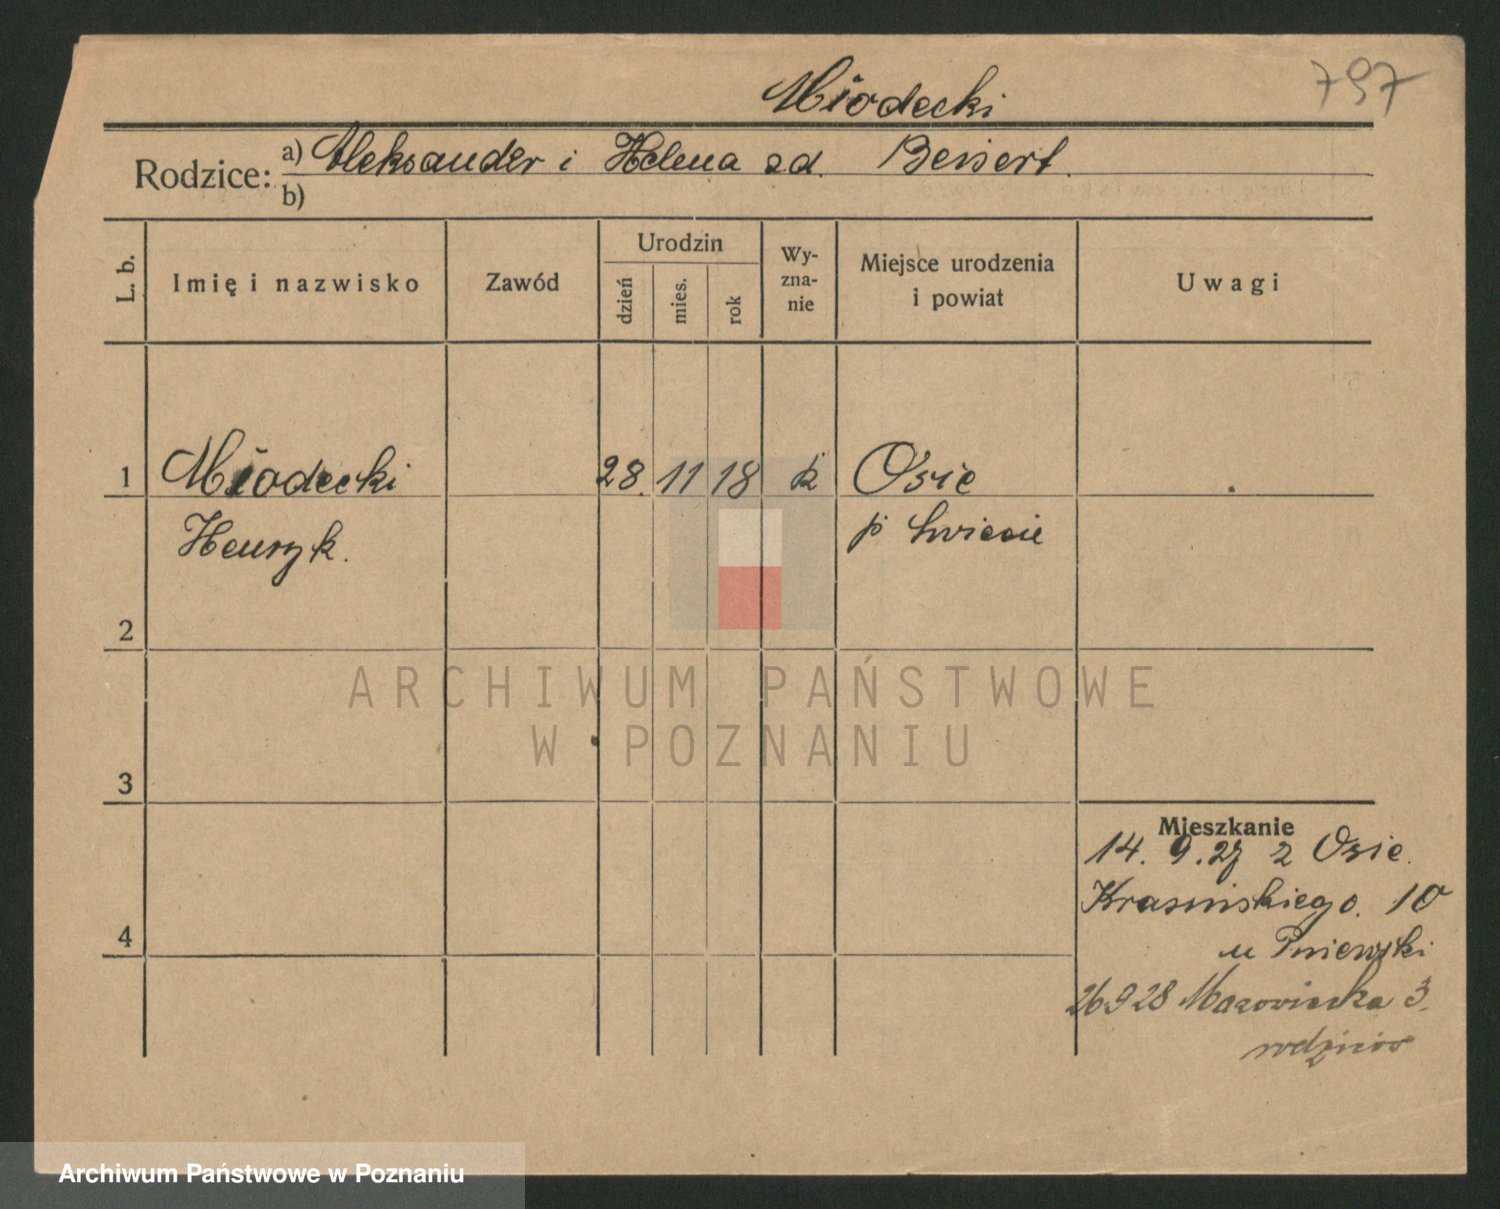 797
Miodecki
Rodzice: a) Aleksander i Helena zd. Beisert.
b)
L. b.
Imię i nazwisko
Zawód
Urodzin
dzień
mies.
rok
Wy-
zna-
nie
Miejsce urodzenia
i powiat
Uwagi
1 Miodecki 28. 11 18 k Osie
Henryk. p Świecie
2
3
4
Mieszkanie
14. 9. 27 z Osie.
Krasińskiego. 10
u Pniewski
26 9 28 Mazowiecka 3.
rodziców
ARCHIWUM PAŃSTWOWE
W POZNANIU
Archiwum Państwowe w Poznaniu